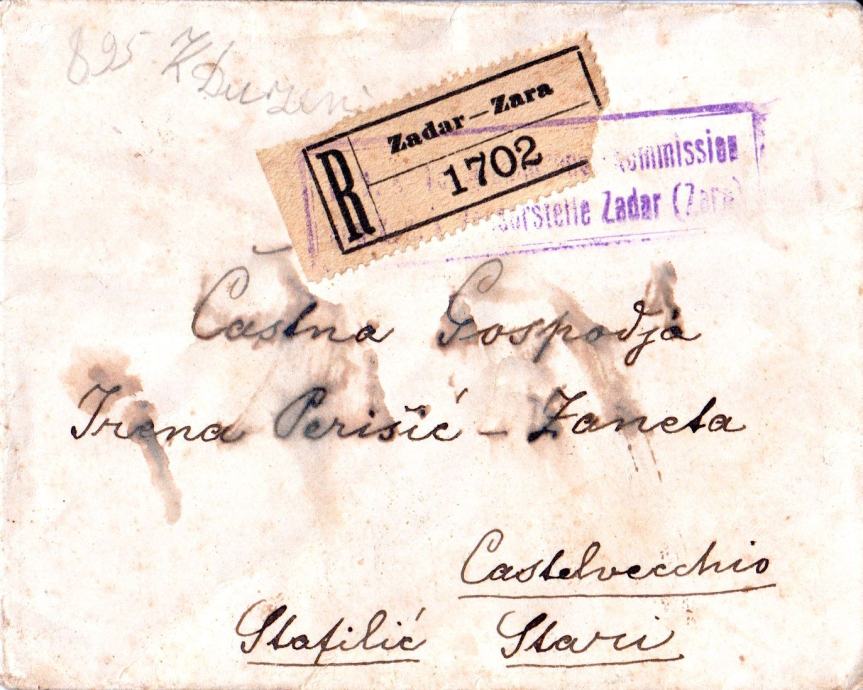 895
Zadar-Zara
R 1702
Commission
Zadar (Zara)
Častna Gospodja
Irena Perišić - Zaneta
Castelvecchio
Stafilić Stari